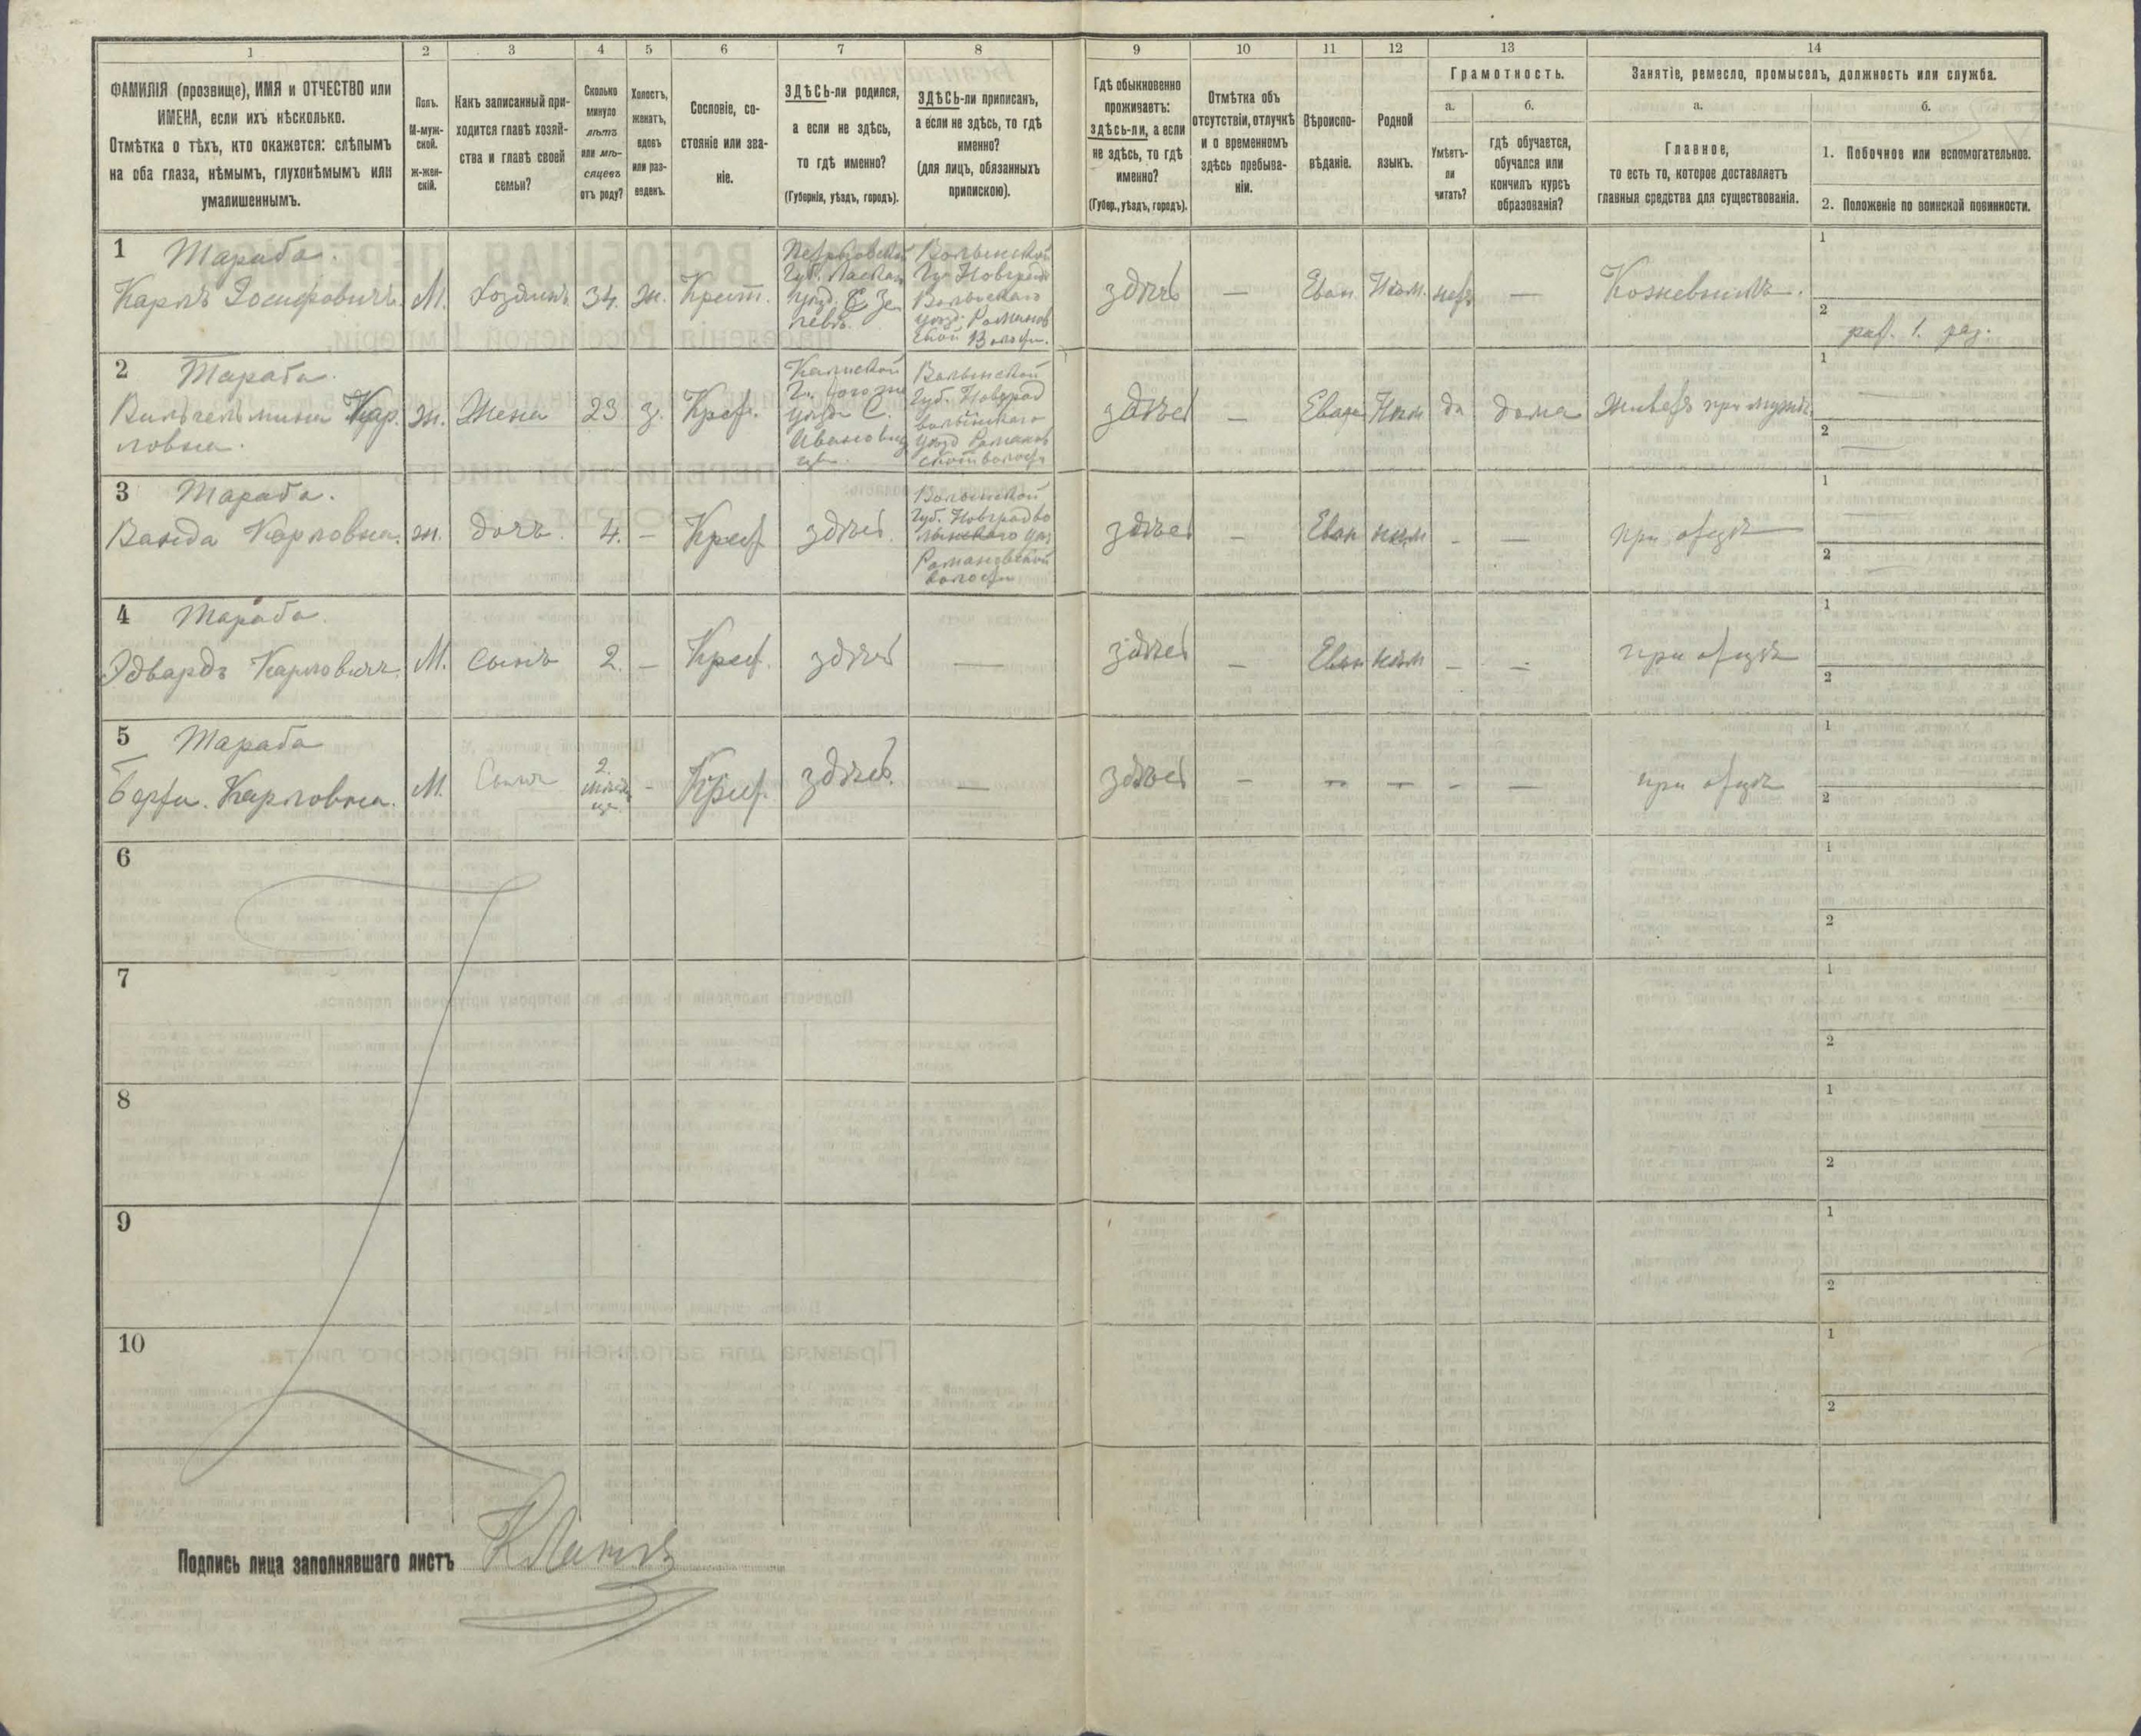 1
2
3
4
5
6
7
8
9
10
11
12
13
14
ФАМИЛІЯ (прозвище), ИМЯ и ОТЧЕСТВО или
ИМЕНА, если ихъ нѣсколько.
Отмѣтка о тѣхъ, кто окажется: слѣпымъ
на оба глаза, нѣмымъ, глухонѣмымъ или
умалишеннымъ.
Полъ.
М-муж-
ской.
Ж-жен-
скій.
Какъ записанный при-
ходится главѣ хозяй-
ства и главѣ своей
семьи?
Сколько
минуло
лѣтъ
или мѣ-
сяцевъ
отъ роду?
Холостъ,
женатъ,
вдовъ
или раз-
веденъ.
Сословіе, со-
стояніе или зва-
ніе.
ЗДѢСЬ-ли родился,
а если не здѣсь,
то гдѣ именно?
(Губернія, уѣздъ, городъ).
ЗДѢСЬ-ли приписанъ,
а если не здѣсь, то гдѣ
именно?
(для лицъ, обязанныхъ
припискою).
Гдѣ обыкновенно
проживаетъ:
здѣсь-ли, а если
не здѣсь, то гдѣ
именно?
(Губер., уѣздъ, городъ).
Отмѣтка объ
отсутствіи, отлучкѣ
и о временномъ
здѣсь пребыва-
ніи.
Вѣроиспо-
вѣданіе.
Родной
языкъ.
Грамотность.
а.
Умѣетъ-
ли
читать?
б.
гдѣ обучается,
обучался или
кончилъ курсъ
образованія?
Занятіе, ремесло, промыселъ, должность или служба.
а.
Главное,
то есть то, которое доставляетъ
главныя средства для существованія.
б.
1. Побочное или вспомогательное.
2. Положеніе по воинской повинности.
1 Тараба.
Карлъ
М.
Хозяинъ
34.
ж.
Крест.
Губ.
Волынской
Губ.
Волынскаго
здѣсь
—
Еван
Нѣм.
нетъ
—
Кожевникъ.
1
2
рат. 1. раз.
2 Тараба.
Вильгельмина Кар.
ловна.
ж.
Жена
23
з.
Крест.
Калиской
уѣзда С.
Волынской
Губ. Новград
волынскаго
уѣзд Романов
ской волости
здѣсь
—
Еван
Нѣм
да
дома
Живетъ при мужѣ
1
2
3 Тараба.
Ванда Карловна.
ж.
дочь.
4.
—
Крест
здѣсь.
Волынской
Губ. Новградво
лынскаго уѣз
Романовской
волости
здѣсь
—
Еван
нѣм
-
—
при отцѣ
1
2
4 Тараба.
Эдвардъ Карловичъ.
М.
сынъ
2.
—
Крест.
здѣсь
—
здѣсь
—
Еван
нѣм
-
—
при отцѣ
1
2
5 Тараба
Берта. Карловна.
М.
Сынъ
2.
мѣся
ца.
-
Крест.
здѣсь.
—
здѣсь
—
—
—
-
—
при отцѣ
1
2
6
1
2
7
1
2
8
1
2
9
1
2
10
1
2
Подпись лица заполнявшаго листъ